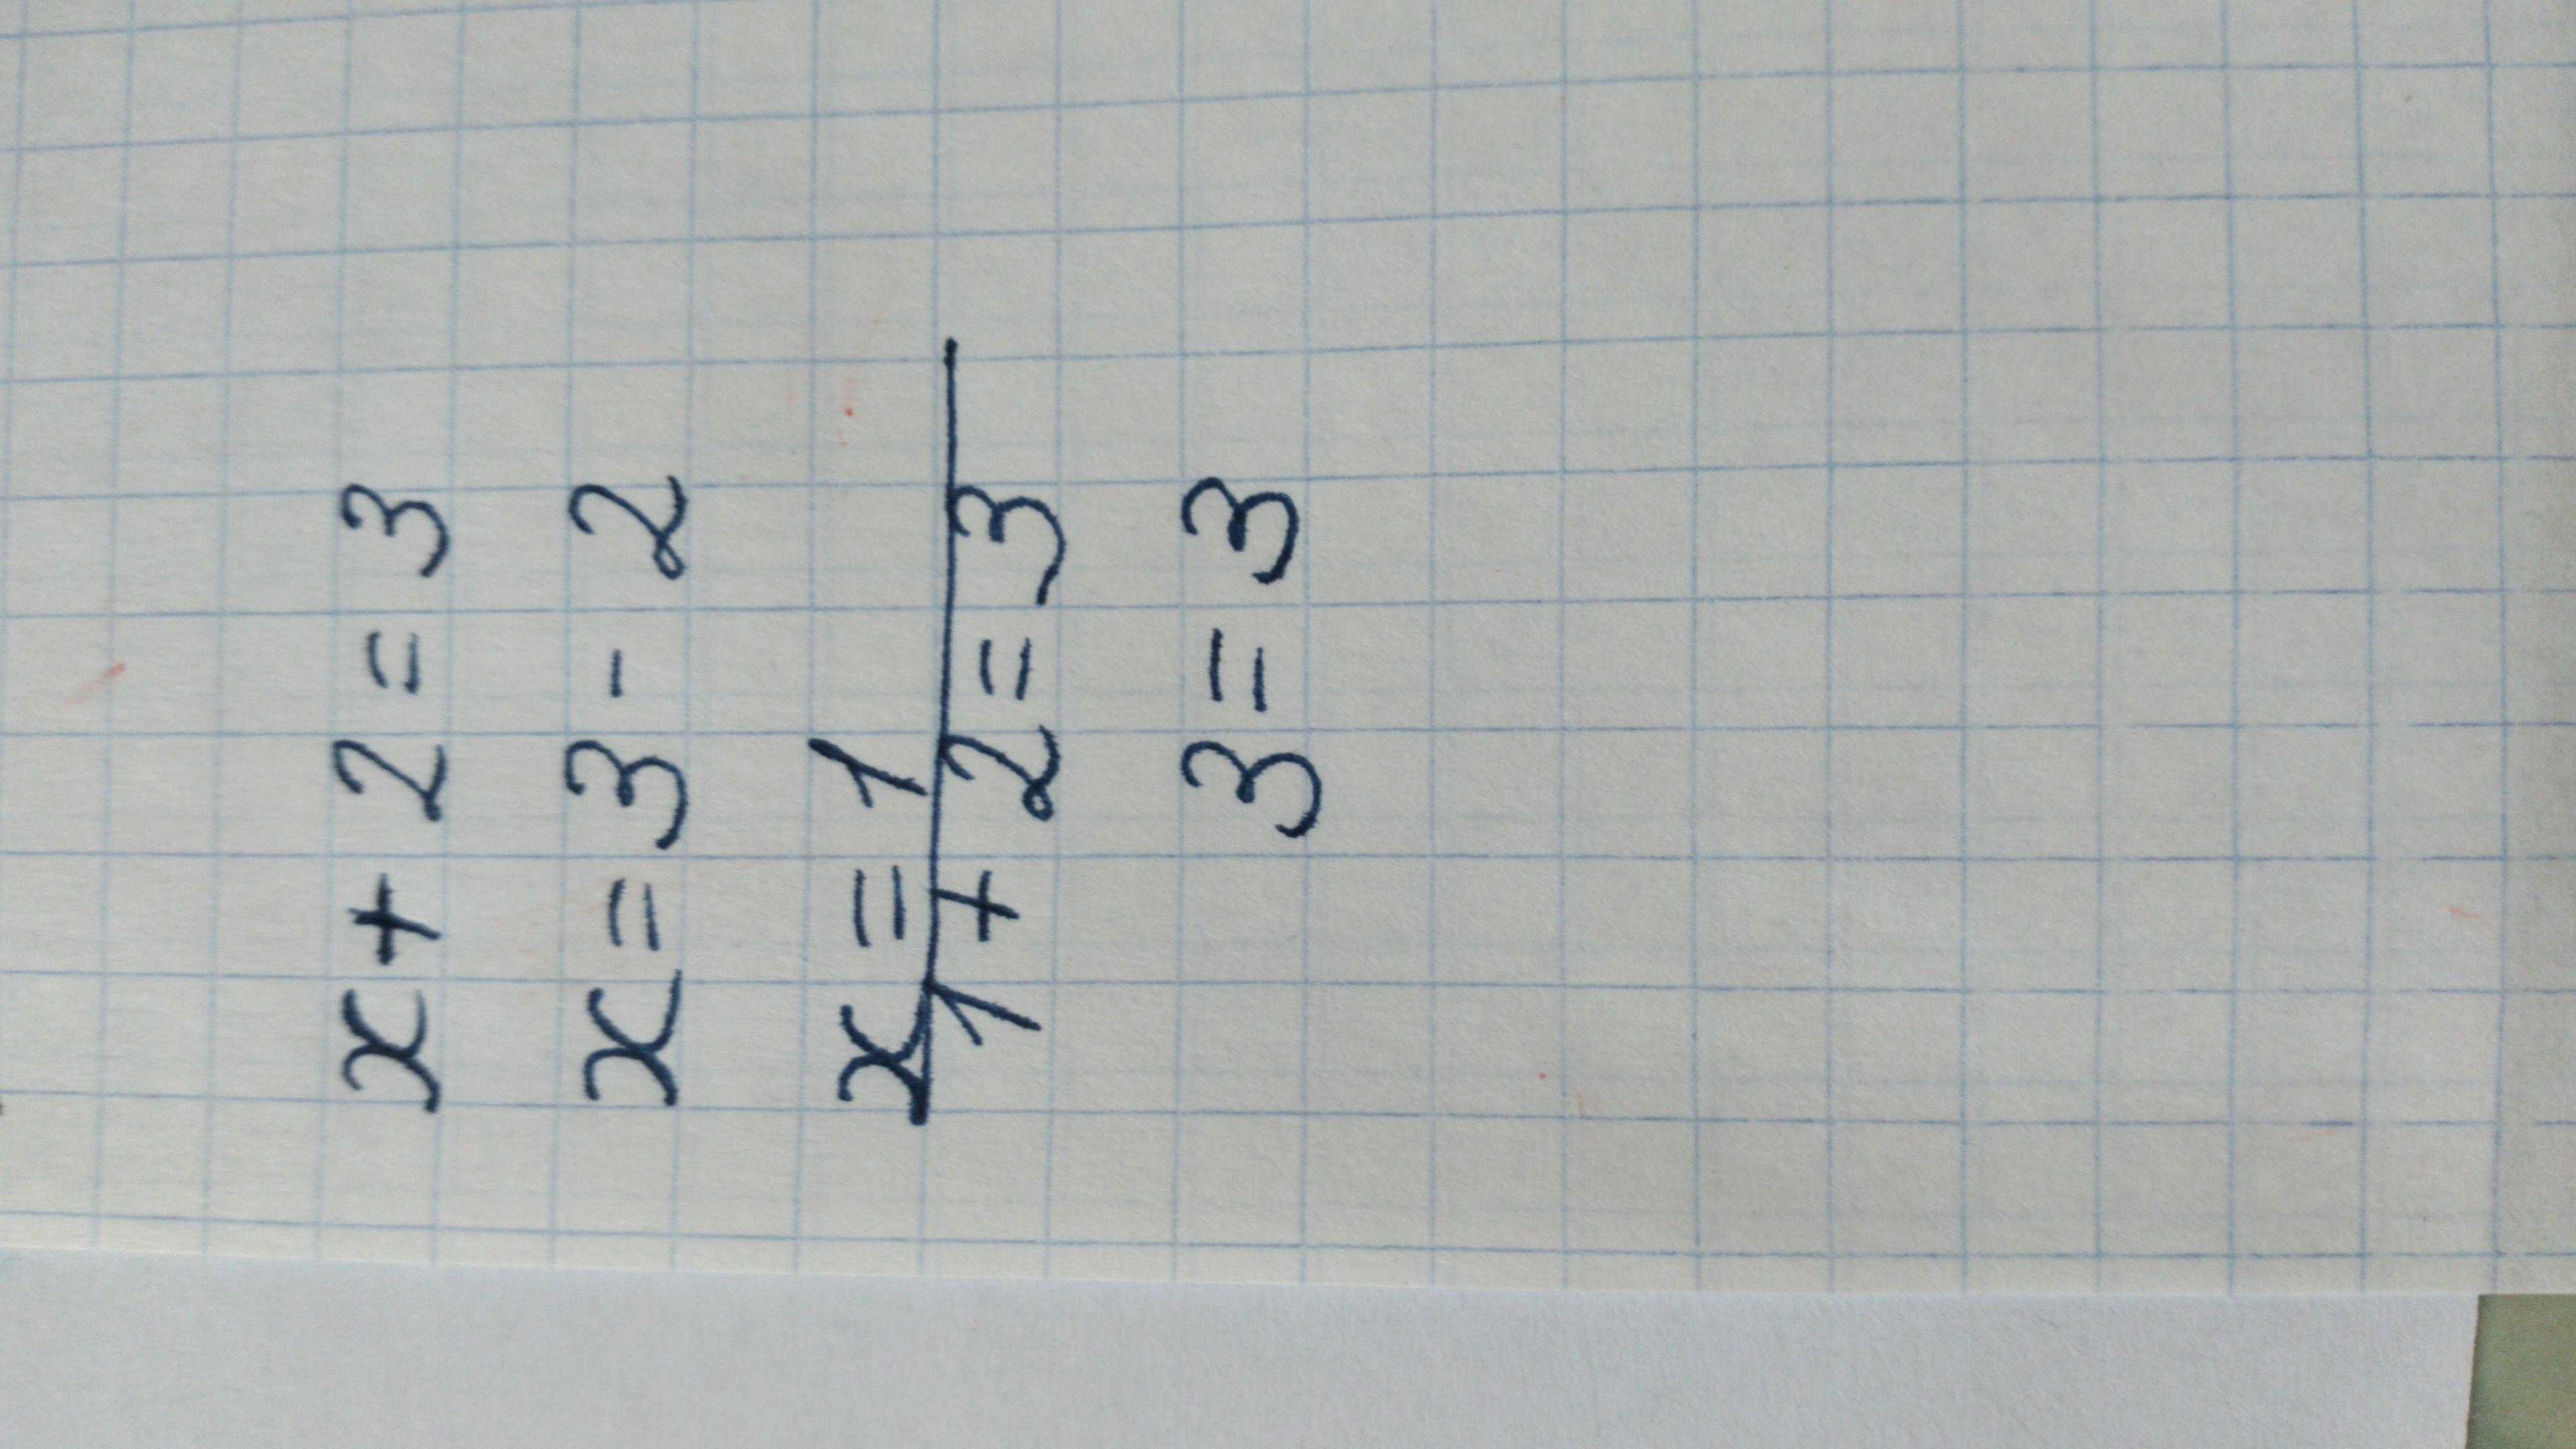 x + 2 = 3
x = 3 - 2
x = 1
1 + 2 = 3
3 = 3